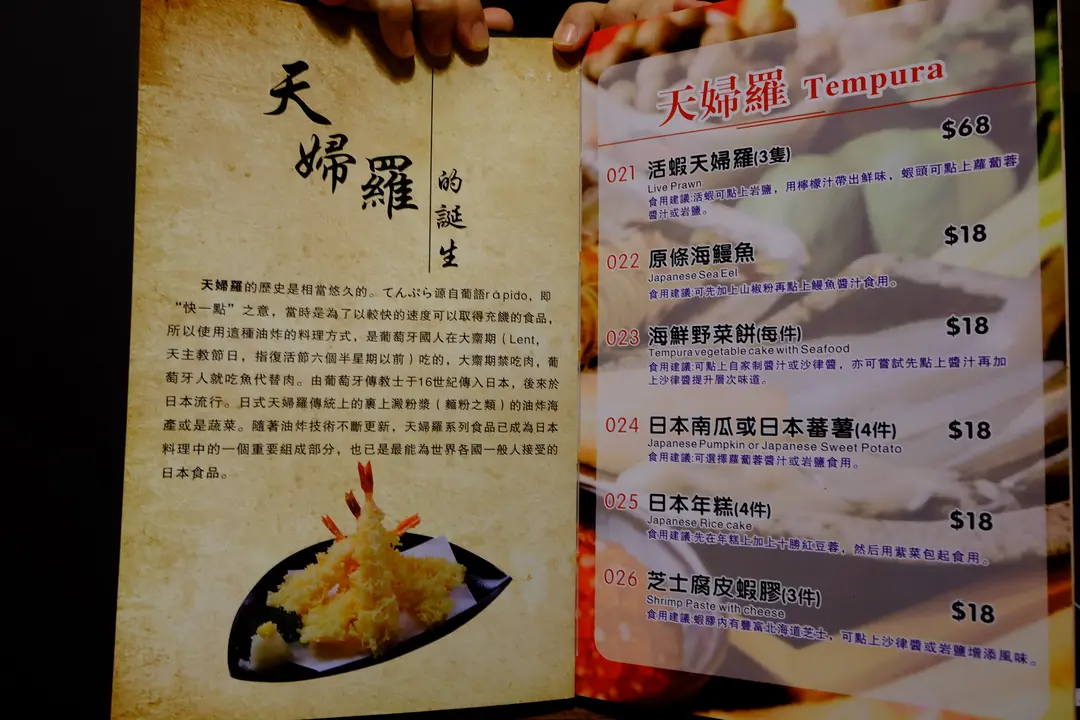 天婦羅
的誕生
天婦羅的歷史是相當悠久的。てんぷら源自葡語rápido，即
“快一點”之意，當時是為了以較快的速度可以取得充饑的食品，
所以使用這種油炸的料理方式，是葡萄牙國人在大齋期（Lent，
天主教節日，指復活節六個半星期以前）吃的，大齋期禁吃肉，葡
萄牙人就吃魚代替肉。由葡萄牙傳教士于16世紀傳入日本，後來於
日本流行。日式天婦羅傳統上的裹上澱粉漿（麵粉之類）的油炸海
產或是蔬菜。隨著油炸技術不斷更新，天婦羅系列食品已成為日本
料理中的一個重要組成部分，也已是最能為世界各國一般人接受的
日本食品。
天婦羅 Tempura
$68
021 活蝦天婦羅(3隻)
Live Prawn
食用建議:活蝦可點上岩鹽，用檸檬汁帶出鮮味，蝦頭可點上蘿蔔蓉
醬汁或岩鹽。
$18
022 原條海鰻魚
Japanese Sea Eel
食用建議:可先加上山椒粉再點上鰻魚醬汁食用。
023 海鮮野菜餅(每件) $18
Tempura vegetable cake with Seafood
食用建議:可點上自家制醬汁或沙律醬，亦可嘗試先點上醬汁再加
上沙律醬提升層次味道。
024 日本南瓜或日本蕃薯(4件) $18
Japanese Pumpkin or Japanese Sweet Potato
食用建議:可選擇蘿蔔蓉醬汁或岩鹽食用。
025 日本年糕(4件) $18
Japanese Rice cake
食用建議:先在年糕上加上十勝紅豆蓉，然后用紫菜包起食用。
026 芝士腐皮蝦膠(3件) $18
Shrimp Paste with cheese
食用建議:蝦膠內有豐富北海道芝士，可點上沙律醬或岩鹽增添風味。